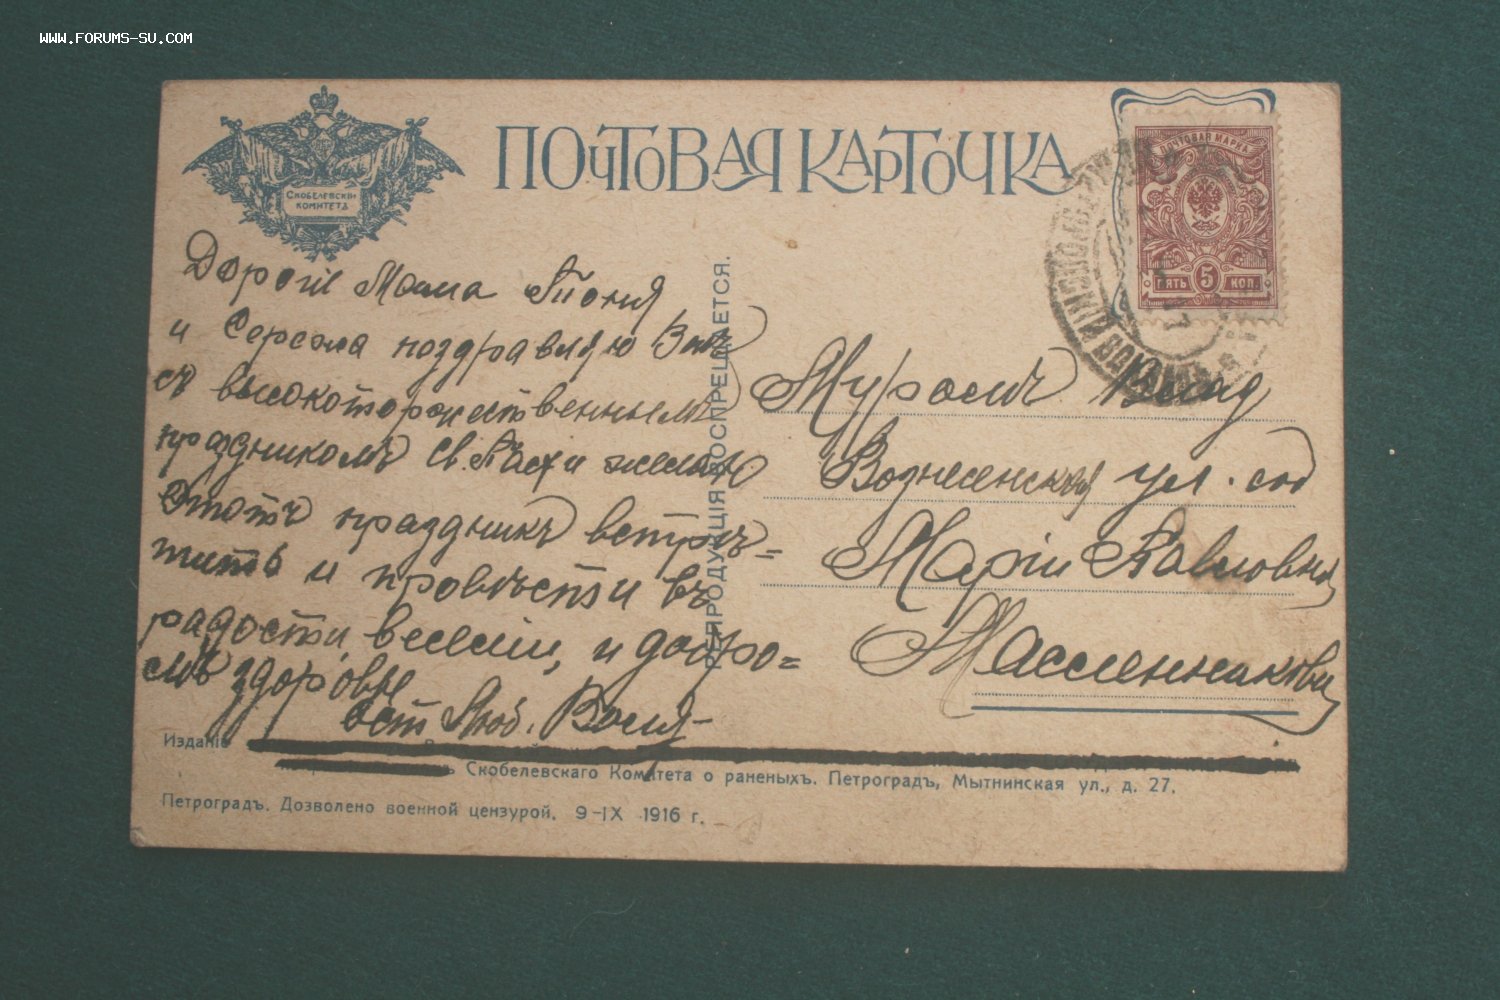 WWW.FORUMS-SU.COM
СКОБЕЛЕВСКІЙ
КОМИТЕТЪ
ПОЧТОВАЯ КАРТОЧКА
ПОЧТОВАЯ МАРКА
ПЯТЬ 5 КОП.
Дорогіе Мама Тоня
и Сережа поздравляю Васъ
съ высокоторжественнымъ
праздникомъ Св. Пасхи желаю
Этотъ праздникъ встрѣ=
тить и провѣсти въ
радости, веселіи, и добро=
мъ здоровьи
ост Люб. Вася
РЕПРОДУКЦІЯ ВОСПРЕЩАЕТСЯ.
Муромъ Влад
Вознесенская ул. соб
Маріи Павловны
Масленниковы
Изданіе
Скобелевскаго Комитета о раненыхъ. Петроградъ, Мытнинская ул., д. 27.
Петроградъ. Дозволено военной цензурой. 9-IX 1916 г.